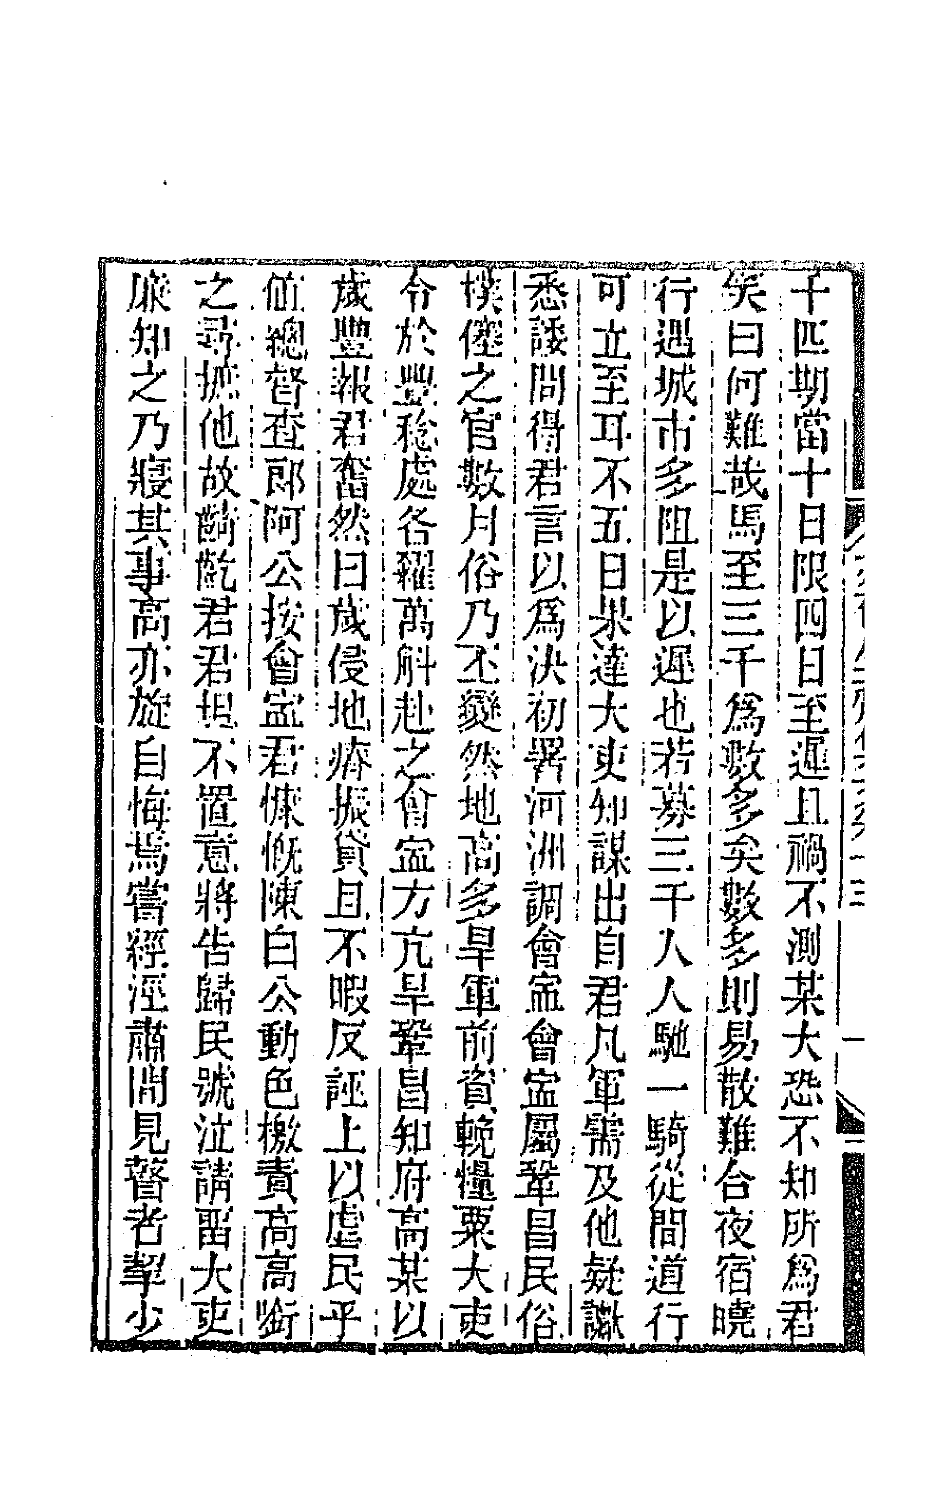 千匹期當十日限四日至遲且禍不測某大恐不知所爲君
矣曰何難哉馬至三千爲數多矣數多則易散難合夜宿曉
行遇城市多阻是以遲也若募三千人人馳一騎從間道行
可立至耳不五日果達大吏知謀出自君凡軍需及他疑讞
悉諉問得君言以爲決初署河洲調會寍會寍屬鞏昌民俗
樸僿之官數月俗乃丕變然地高多旱軍前資輓糧粟大吏
令於豐稔處各糴萬斛赴之會寍方亢旱鞏昌知府高某以
歲豐報君奮然曰歲侵地瘠振貸且不暇反誣上以虐民乎
値總督查郎阿公按會寍君慷慨陳白公動色檄責高高銜
之尋摭他故齮齕君君坦不置意將吿歸民號泣請畱大吏
廉知之乃寢其事高亦旋自悔焉嘗經涇肅間見瞽者挈少